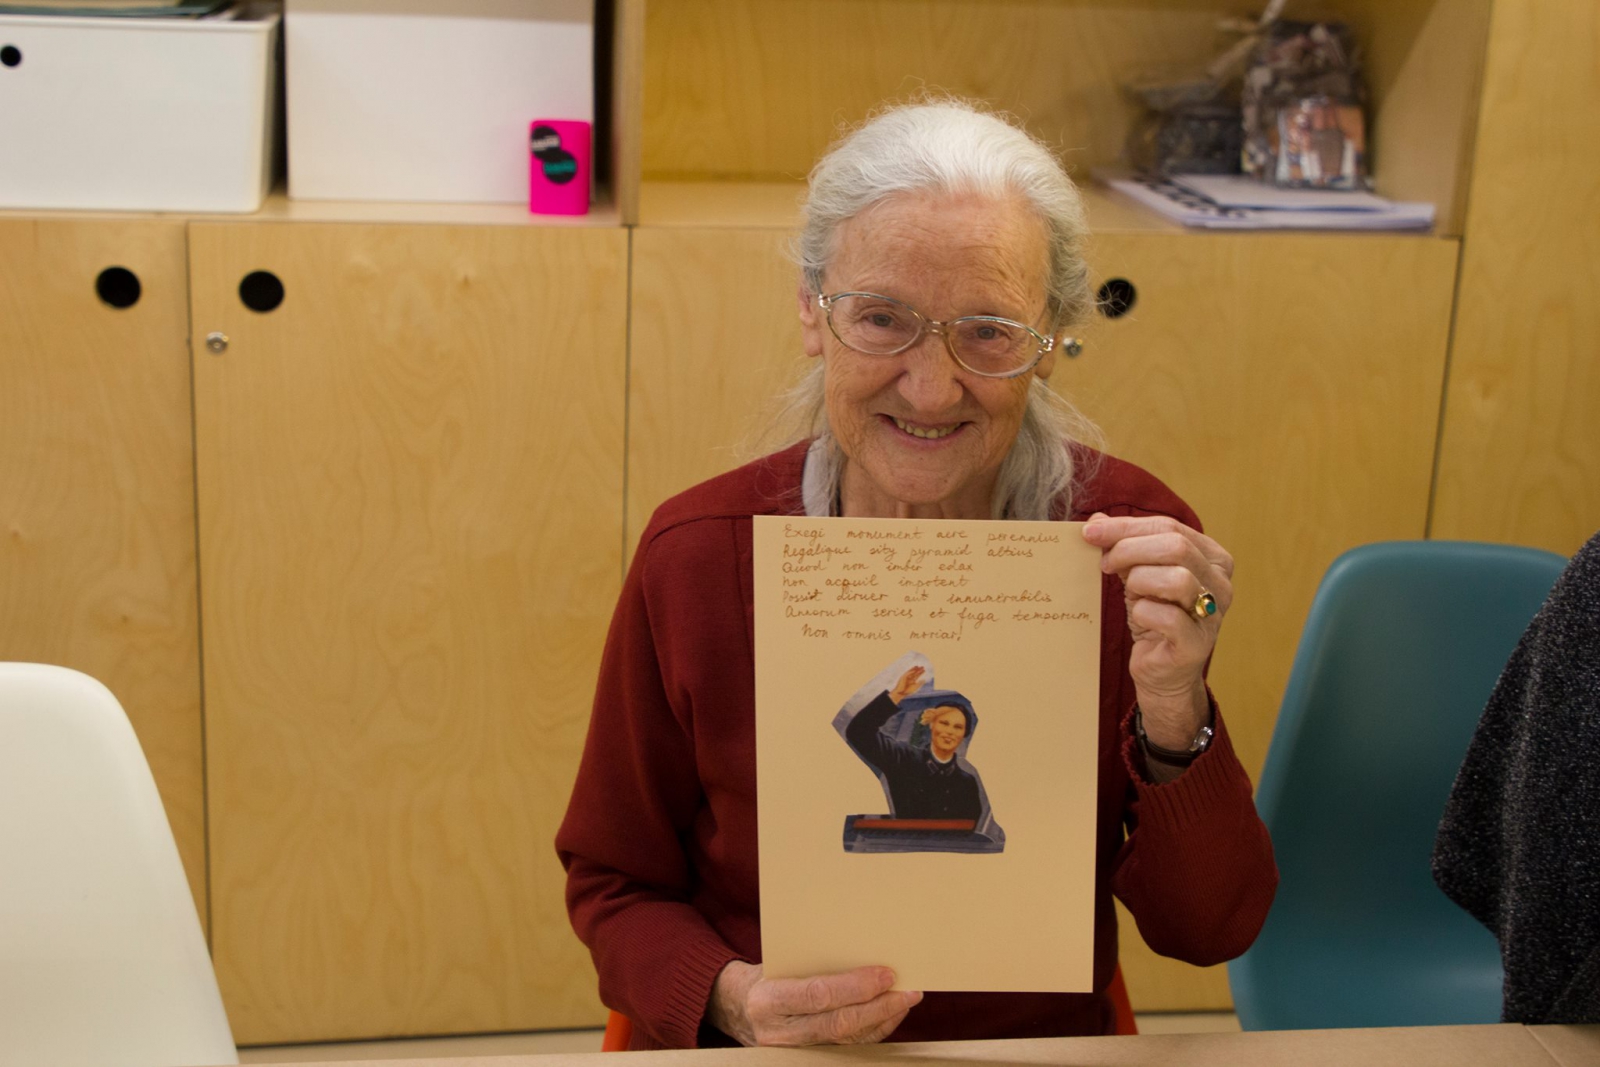 Exegi monument aere perennius
Regalique sity pyramid altius
Quod non imber edax
non acquil impotent
Possit diruer aut innumerabilis
Annorum series et fuga temporum.
Non omnis moriar!